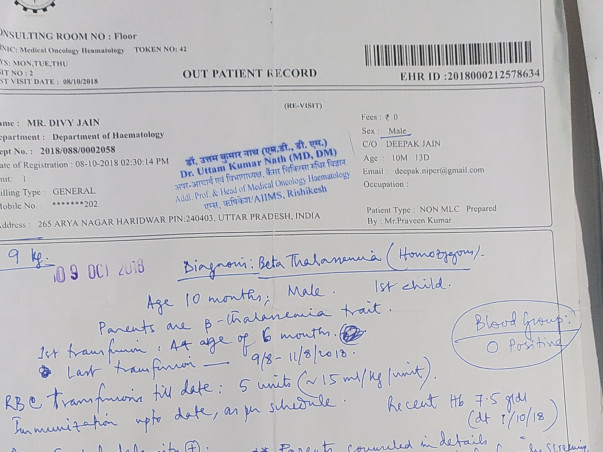 NSULTING ROOM NO : Floor
NIC: Medical Oncology Heamatology TOKEN NO: 42
YS: MON,TUE,THU
IT NO : 2
ST VISIT DATE : 08/10/2018
OUT PATIENT RECORD
EHR ID :2018000212578634
(RE-VISIT)
ame : MR. DIVY JAIN
epartment : Department of Haematology
ept No. : 2018/088/0002058
ate of Registration : 08-10-2018 02:30:14 PM
nit: 1
illing Type : GENERAL
obile No. *******202
ddress : 265 ARYA NAGAR HARIDWAR PIN:240403, UTTAR PRADESH, INDIA
डॉ. उत्तम कुमार नाथ (एम.डी., डी. एम.)
Dr. Uttam Kumar Nath (MD, DM)
अपर-आचार्य एवं विभागाध्यक्ष, कैंसर चिकित्सा रुधिर विज्ञान
Addl. Prof. & Head of Medical Oncology Haematology
एम्स, ऋषिकेश/AIIMS, Rishikesh
Fees : ₹ 0
Sex : Male
C/O DEEPAK JAIN
Age : 10M 13D
Email : deepak.niper@gmail.com
Occupation :
Patient Type : NON MLC Prepared
By : Mr.Praveen Kumar
9 kg.
09 OCT 2018
Diagnosis: Beta Thalassemia (Homozygous).
Age 10 months; Male. 1st child.
Parents are β-thalassemia trait.
1st transfusion: At age of 6 months.
Last transfusion — 9/8 - 11/8/2018.
RBC Transfusions till date: 5 units (~15ml/kg/unit).
Immunization upto date, as per schedule.
Blood Group:
O Positive
Recent Hb 7.5 g/dl
Parents counseled in details